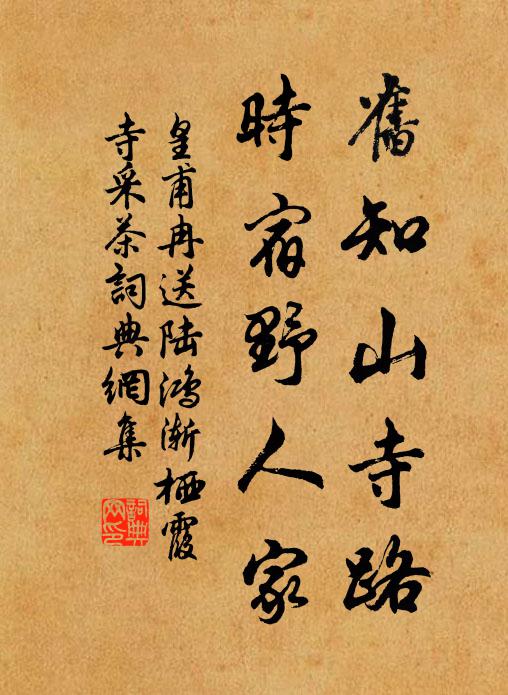 舊知山寺路
時宿野人家
皇甫冉送陸鴻漸栖霞
寺采茶詞典網集
詞典
网印